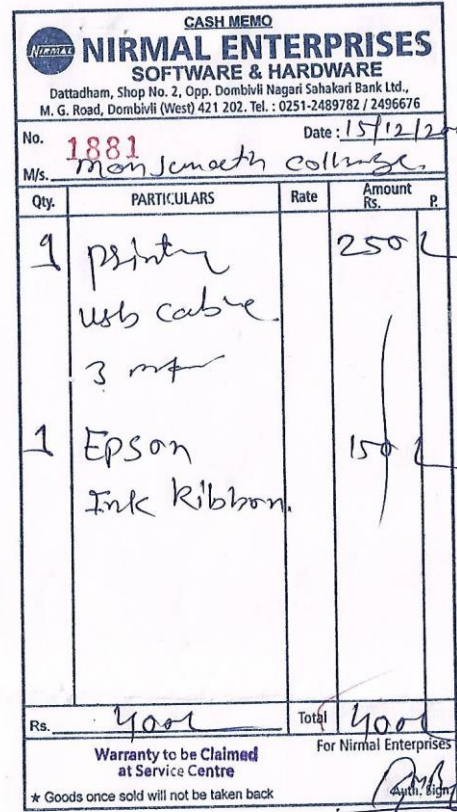 CASH MEMO
NIRMAL
NIRMAL ENTERPRISES
SOFTWARE & HARDWARE
Dattadham, Shop No. 2, Opp. Dombivli Nagari Sahakari Bank Ltd.,
M. G. Road, Dombivli (West) 421 202. Tel. : 0251-2489782 / 2496676
No. 1881 Date : 15/12/20
M/s. college
Qty. PARTICULARS Rate Amount Rs. P.
1 printer 250
usb cable
3 mtr
1 Epson 150
Ink Ribbon.
Rs. 400/- Total 400/-
Warranty to be Claimed
at Service Centre
For Nirmal Enterprises
* Goods once sold will not be taken back
Auth. Sign.